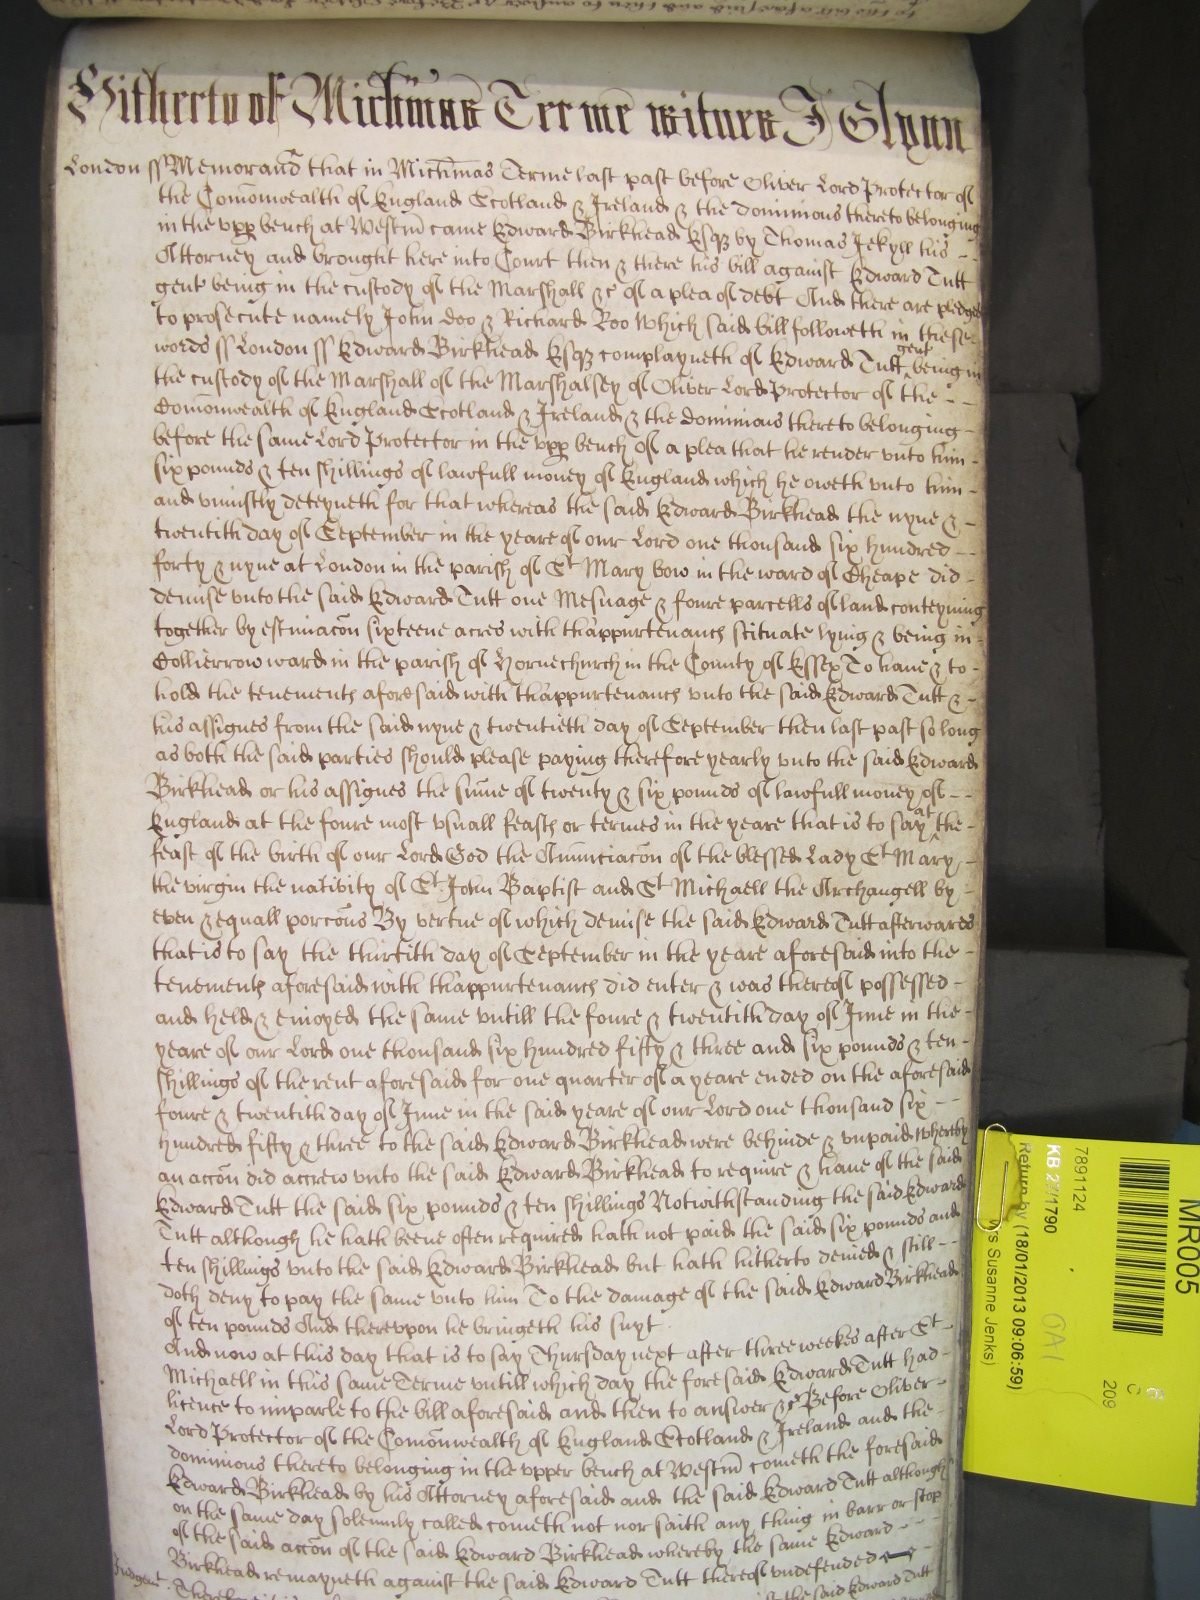 Hitherto of Michmas Terme witnes J Glynn
London ss Memorand that in Michmas Terme last past before Oliver Lord Protector of
the Comonwealth of England Scotland & Ireland & the dominions thereto belonging
in the vpp bench at Westm came Edward Birkhead Esqz by Thomas Jekyll his
Attorney and brought here into Court then & there his bill against Edward Tutt
gent being in the custody of the Marshall &c of a plea of debt And there are pledges
to prosecute namely John Doo & Richard Roo Which said bill followeth in these
words ss London ss Edward Birkhead Esqz complayneth of Edward Tutt gent being in
the custody of the Marshall of the Marshalsey of Oliver Lord Protector of the
Comonwealth of England Scotland & Ireland & the dominions thereto belonging
before the same Lord Protector in the vpp bench of a plea that he render vnto him
six pounds & ten shillings of lawfull money of England which he oweth vnto him
and vniustly deteyneth for that whereas the said Edward Birkhead the nyne &
twentith day of September in the yeare of our Lord one thousand six hundred
forty & nyne at London in the parish of St Mary bow in the ward of Cheape did
demise vnto the said Edward Tutt one Mesuage & foure parcells of land conteyning
together by estimacon sixteene acres with thappurtenances scituate lying & being in
Collierrow ward in the parish of Hornechurch in the County of Essex To haue & to
hold the tenements aforesaid with thappurtenances vnto the said Edward Tutt &
his assignes from the said nyne & twentieth day of September then last past so long
as both the said parties should please paying therefore yearly vnto the said Edward
Birkhead or his assignes the sume of twenty & six pounds of lawfull money of
England at the foure most vsuall feasts or termes in the yeare that is to say at the
feast of the birth of our Lord God the Anunciacon of the blessed Lady St Mary
the virgin the nativity of St John Baptist and St Michaell the Archangell by
even & equall porcons By vertue of which demise the said Edward Tutt afterwards
that is to say the thirtith day of September in the yeare aforesaid into the
tenements aforesaid with thappurtenances did enter & was thereof possessed
and held & enioyed the same vntill the foure & twentith day of June in the
yeare of our Lord one thousand six hundred fifty & three and six pounds & ten
shillings of the rent aforesaid for one quarter of a yeare ended on the aforesaid
foure & twentith day of June in the said yeare of our Lord one thousand six
hundred fifty & three to the said Edward Birkhead were behinde & vnpaid whereby
an accon did accrew vnto the said Edward Birkhead to require & haue of the said
Edward Tutt the said six pounds & ten shillings Notwithstanding the said Edward
Tutt although he hath beene often required hath not paid the said six pounds and
ten shillings vnto the said Edward Birkhead but hath hitherto denied & still
doth deny to pay the same vnto him To the damage of the said Edward Birkhead
of ten pounds And therevpon he bringeth his suyt
And now at this day that is to say Thursday next after three weekes after St
Michaell in this same Terme vntill which day the foresaid Edward Tutt had
licence to imparle to the bill aforesaid and then to answer &c Before Oliver
Lord Protector of the Comonwealth of England Scotland & Ireland and the
dominions thereto belonging in the vpper bench at Westm cometh the foresaid
Edward Birkhead by his Attorney aforesaid and the said Edward Tutt although
on the same day solemnly called cometh not nor saith any thing in barr or stop
of the said accon of the said Edward Birkhead whereby the same Edward
Birkhead remayneth against the said Edward Tutt thereof vndefended
Judgem
the said Edward Tutt
MR005
7891124
209
KB 27/1790
Return by (18/01/2013 09:06:59)
Susanne Jenks)